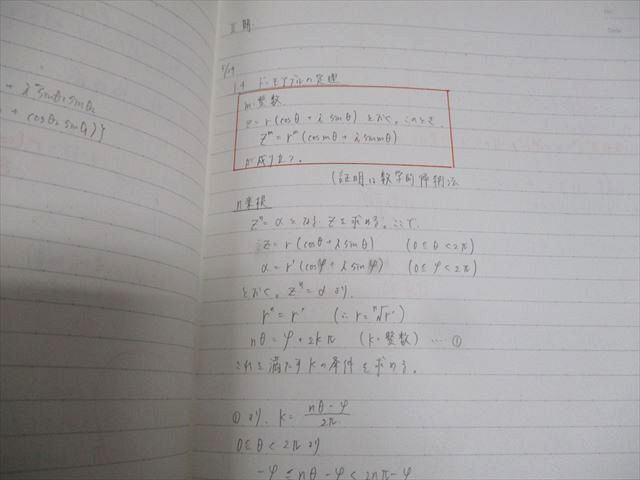 + i² sinθ₁ sinθ₂
+ cosθ₂ sinθ₁)}
II期
14 ド・モアブルの定理
m:整数
z = r(cosθ + i sinθ) とおく。このとき
zᵐ = rᵐ(cos mθ + i sin mθ)
が成り立つ。
(証明は数学的帰納法
n乗根
zⁿ = α となる z を求める。ここで
z = r(cosθ + i sinθ) (0 ≤ θ < 2π)
α = r'(cosφ + i sinφ) (0 ≤ φ < 2π)
とおく。zⁿ = α より
rⁿ = r' (∴ r = ⁿ√r')
nθ = φ + 2kπ (k:整数) … ①
これを満たす k の条件を求める。
①より、k = (nθ - φ)/2π
0 ≤ θ < 2π より
-φ ≤ nθ - φ < 2nπ - φ